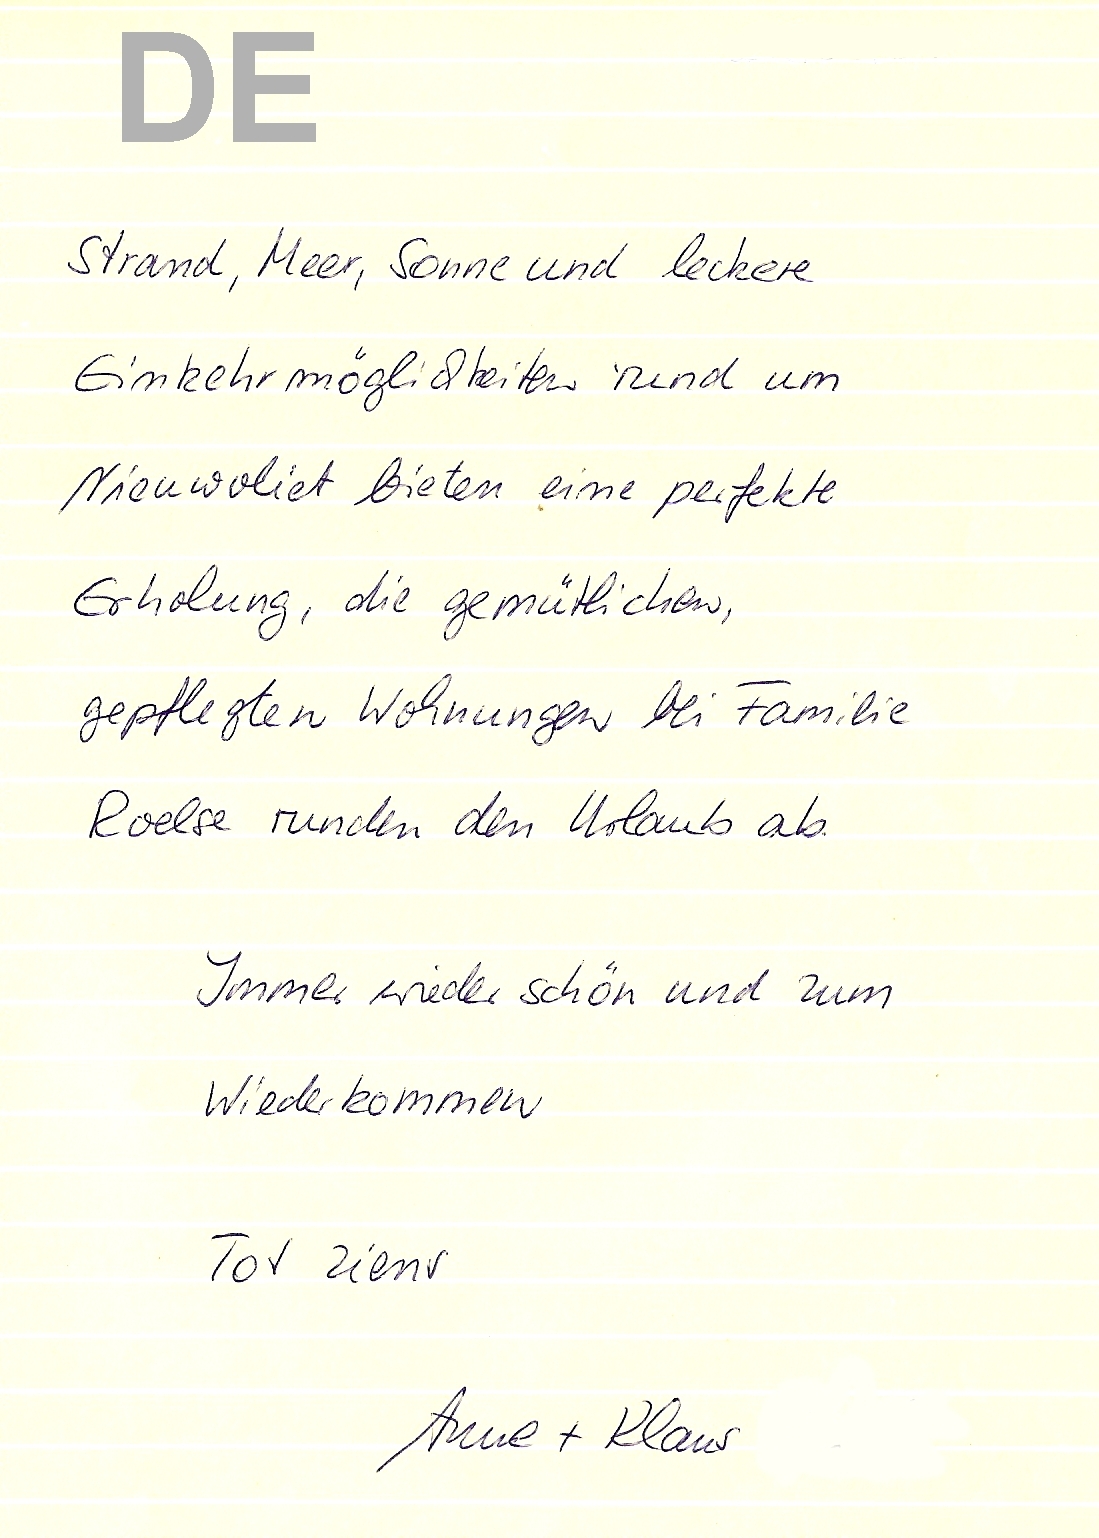 DE
Strand, Meer, Sonne und leckere
Einkehrmöglichkeiten rund um
Nieuwvliet bieten eine perfekte
Erholung, die gemütlichen,
gepflegten Wohnungen bei Familie
Roelse runden den Urlaub ab.
Immer wieder schön und zum
Wiederkommen
Tot ziens
Anne + Klaus